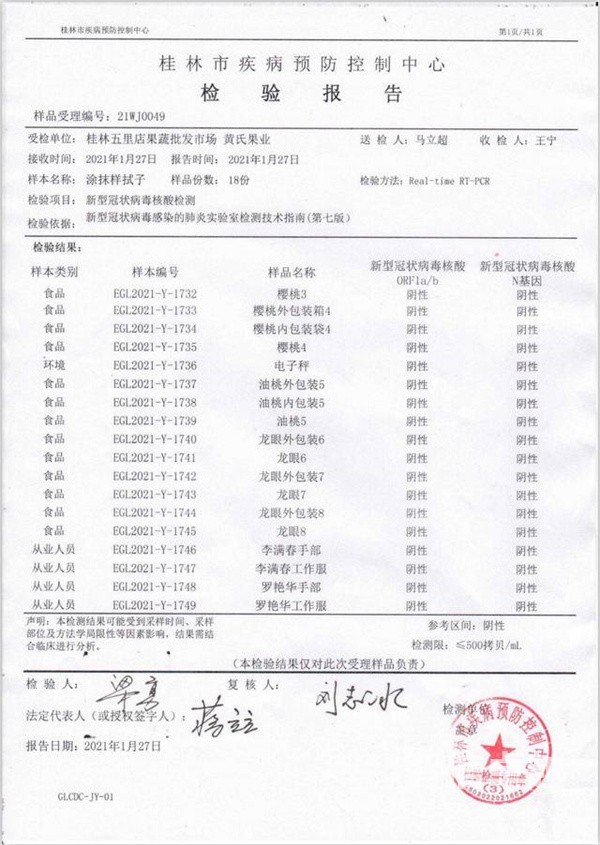 桂林市疾病预防控制中心 第1页/共1页
桂林市疾病预防控制中心
检验报告
样品受理编号：21WJ0049
受检单位： 桂林五里店果蔬批发市场 黄氏果业 送 检 人：马立超 收 检 人：王宁
接收时间： 2021年1月27日 报告时间： 2021年1月27日
样本名称： 涂抹样拭子 样品份数： 18份 检验方法：Real-time RT-PCR
检验项目： 新型冠状病毒核酸检测
检验依据： 新型冠状病毒感染的肺炎实验室检测技术指南(第七版)
检验结果：
样本类别 样本编号 样品名称 新型冠状病毒核酸ORF1a/b 新型冠状病毒核酸N基因
食品 EGL2021-Y-1732 樱桃3 阴性 阴性
食品 EGL2021-Y-1733 樱桃外包装箱4 阴性 阴性
食品 EGL2021-Y-1734 樱桃内包装袋4 阴性 阴性
食品 EGL2021-Y-1735 樱桃4 阴性 阴性
环境 EGL2021-Y-1736 电子秤 阴性 阴性
食品 EGL2021-Y-1737 油桃外包装5 阴性 阴性
食品 EGL2021-Y-1738 油桃内包装5 阴性 阴性
食品 EGL2021-Y-1739 油桃5 阴性 阴性
食品 EGL2021-Y-1740 龙眼外包装6 阴性 阴性
食品 EGL2021-Y-1741 龙眼6 阴性 阴性
食品 EGL2021-Y-1742 龙眼外包装7 阴性 阴性
食品 EGL2021-Y-1743 龙眼7 阴性 阴性
食品 EGL2021-Y-1744 龙眼外包装8 阴性 阴性
食品 EGL2021-Y-1745 龙眼8 阴性 阴性
从业人员 EGL2021-Y-1746 李满春手部 阴性 阴性
从业人员 EGL2021-Y-1747 李满春工作服 阴性 阴性
从业人员 EGL2021-Y-1748 罗艳华手部 阴性 阴性
从业人员 EGL2021-Y-1749 罗艳华工作服 阴性 阴性
声明：本检测结果可能受到采样时间、采样
部位及方法学局限性等因素影响，结果需结
合临床进行分析。
参考区间：阴性
检测限：≤500拷贝/mL
（本检验结果仅对此次受理样品负责）
检 验 人： 复 核 人：
法定代表人（或授权签字人）： 检测单位
报告日期：2021年1月27日
桂林市疾病预防控制中心
(3)
GLCDC-JY-01